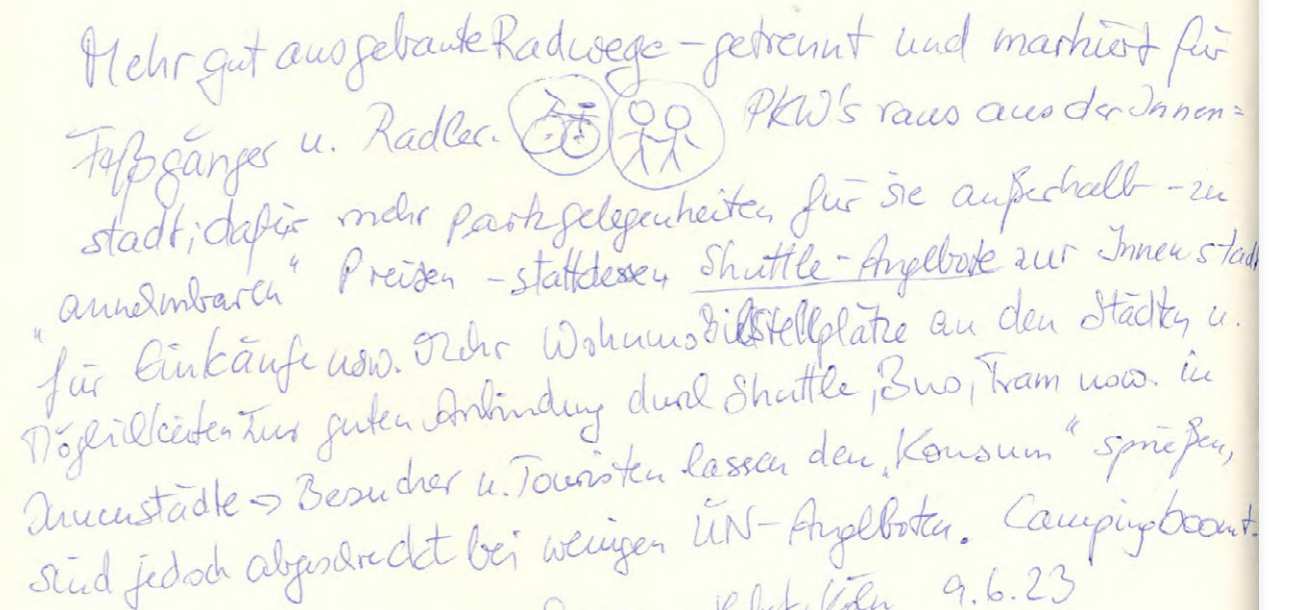 Mehr gut ausgebaute Radwege - getrennt und markiert für
Fußgänger u. Radler. PKW's raus aus der Innen=
stadt; dafür mehr Parkgelegenheiten für sie außerhalb - zu
"annehmbaren" Preisen - stattdessen Shuttle-Angebote zur Innenstadt
für Einkäufe usw. Mehr Wohnmobilstellplätze an den Städten u.
Möglichkeiten zur guten Anbindung durch Shuttle, Bus, Tram usw. in
Innenstädte => Besucher u. Touristen lassen den "Konsum" sprießen,
sind jedoch abgeschreckt bei wenigen ÜN-Angeboten. Camping boomt.
Köln 9.6.23